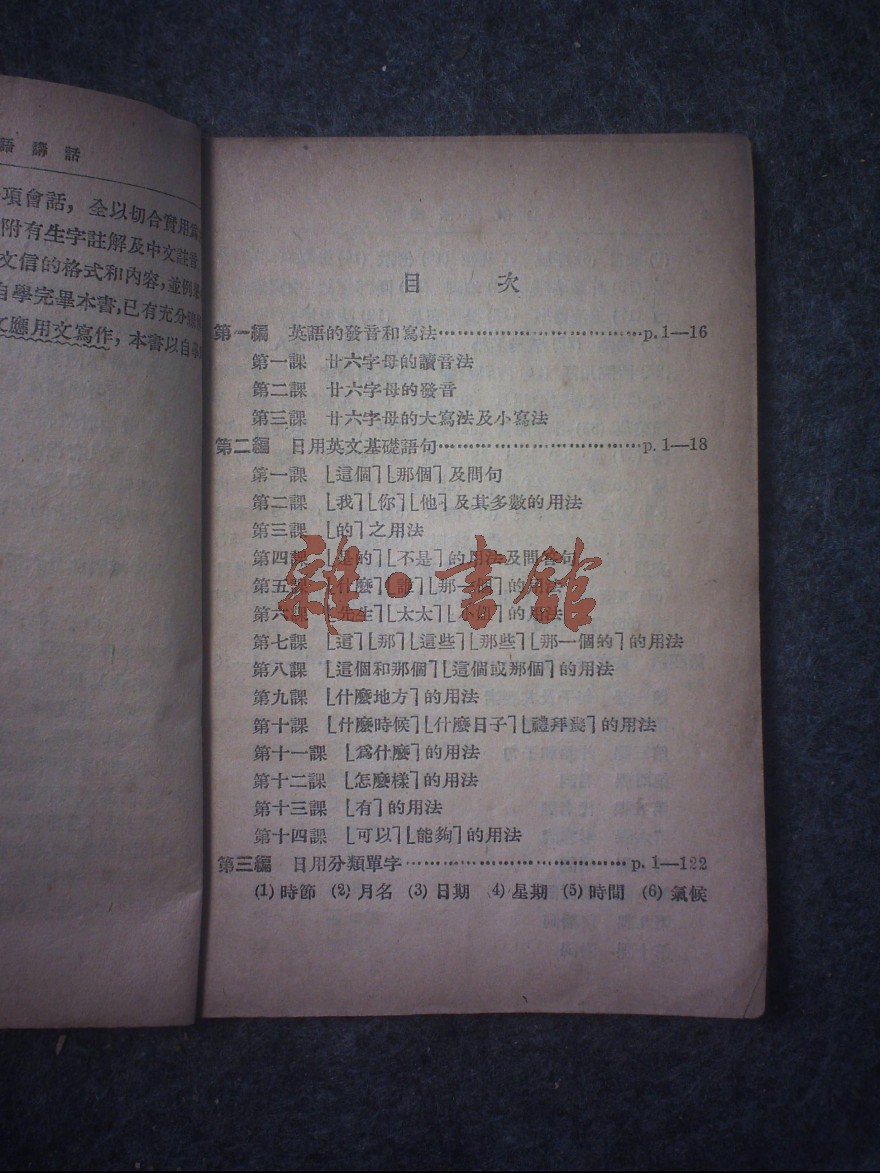 語講話
項會話，全以切合實用爲
附有生字註解及中文註音
文信的格式和內容，並例
自學完畢本書，已有充分
文應用文寫作，本書以自
目 次
第一編 英語的發音和寫法……………………………p.1—16
第一課 廿六字母的讀音法
第二課 廿六字母的發音
第三課 廿六字母的大寫法及小寫法
第二編 日用英文基礎語句……………………………p.1—18
第一課 ⌊這個⌉⌊那個⌉及問句
第二課 ⌊我⌉⌊你⌉⌊他⌉及其多數的用法
第三課 ⌊的⌉之用法
第四課 ⌊是的⌉⌊不是⌉的用法及問答句
第五課 ⌊什麼⌉⌊誰⌉⌊那一個⌉的用法
第六課 ⌊先生⌉⌊太太⌉⌊小姐⌉的用法
第七課 ⌊這⌉⌊那⌉⌊這些⌉⌊那些⌉⌊那一個的⌉的用法
第八課 ⌊這個和那個⌉⌊這個或那個⌉的用法
第九課 ⌊什麼地方⌉的用法
第十課 ⌊什麼時候⌉⌊什麼日子⌉⌊禮拜幾⌉的用法
第十一課 ⌊爲什麼⌉的用法
第十二課 ⌊怎麼樣⌉的用法
第十三課 ⌊有⌉的用法
第十四課 ⌊可以⌉⌊能夠⌉的用法
第三編 日用分類單字……………………………p.1—122
(1)時節 (2)月名 (3)日期 (4)星期 (5)時間 (6)氣候
雜·書館